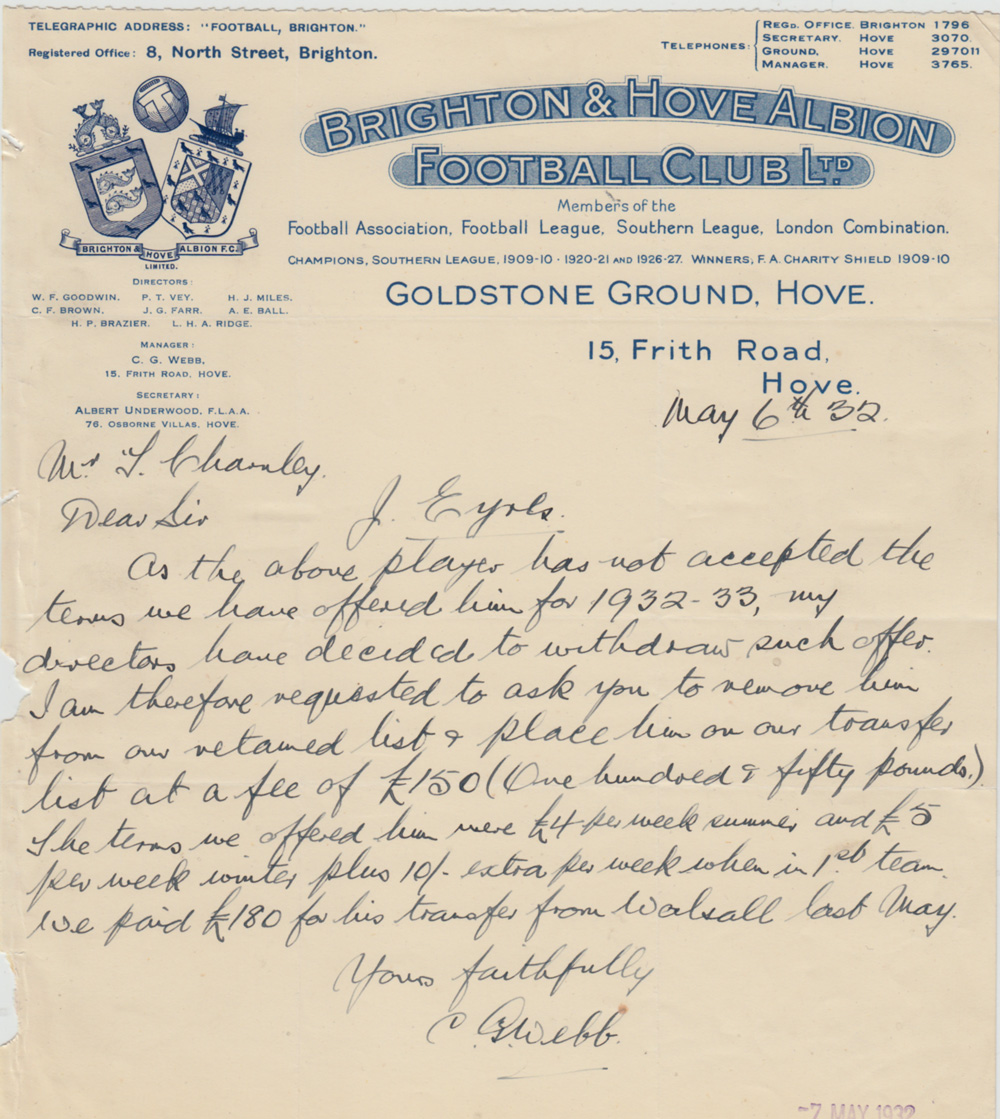 TELEGRAPHIC ADDRESS: "FOOTBALL, BRIGHTON."
Registered Office: 8, North Street, Brighton.
TELEPHONES:
REGD. OFFICE. BRIGHTON 1796
SECRETARY. HOVE 3070.
GROUND, HOVE 297011
MANAGER. HOVE 3765.
BRIGHTON & HOVE ALBION
FOOTBALL CLUB LTD
Members of the
Football Association, Football League, Southern League, London Combination.
CHAMPIONS, SOUTHERN LEAGUE, 1909-10 · 1920-21 AND 1926-27. WINNERS, F.A. CHARITY SHIELD 1909-10
GOLDSTONE GROUND, HOVE.
BRIGHTON & HOVE ALBION F.C.
LIMITED.
DIRECTORS:
W. F. GOODWIN. P. T. VEY. H. J. MILES.
C. F. BROWN. J. G. FARR. A. E. BALL.
H. P. BRAZIER. L. H. A. RIDGE.
MANAGER:
C. G. WEBB,
15. FRITH ROAD, HOVE.
SECRETARY:
ALBERT UNDERWOOD, F.L.A.A.
76. OSBORNE VILLAS, HOVE.
15, Frith Road,
Hove.
May 6th 32.
Mr T. Charnley.
Dear Sir
J. Eyres.
As the above player has not accepted the
terms we have offered him for 1932-33, my
directors have decided to withdraw such offer.
I am therefore requested to ask you to remove him
from our retained list & place him on our transfer
list at a fee of £150 (One hundred & fifty pounds.)
The terms we offered him were £4 per week summer and £5
per week winter plus 10/- extra per week when in 1st team.
We paid £180 for his transfer from Walsall last May.
Yours faithfully
C. G. Webb.
-7 MAY 1932